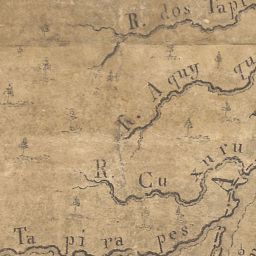 R. dos Tapi
R. Aquy qu
R Cu xuru
A
Tapirapes